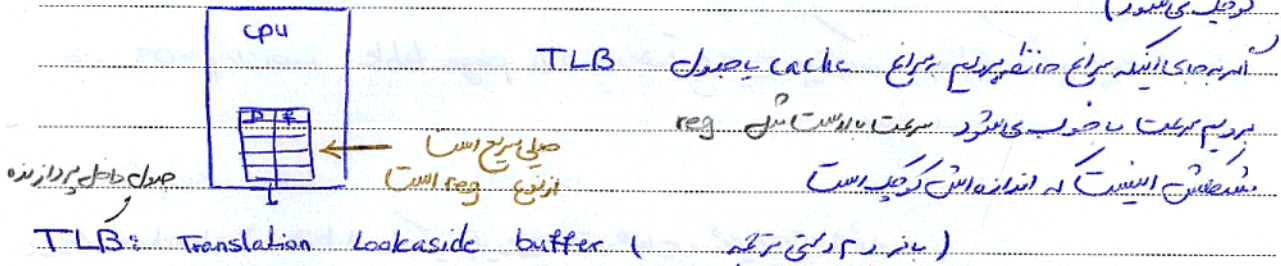 کوچک می‌شود)
cpu
اگر به جای اینکه سراغ حافظه برویم سراغ cache یا جدول TLB
برویم سرعت ما خوب می‌شود سرعت بالاست مثل reg
P F
خیلی سریع است
از نوع reg است
مشکلش اینست که اندازه‌اش کوچک است
جدول داخل پردازنده
TLB: Translation Lookaside buffer (بافر دم دستی ترجمه)